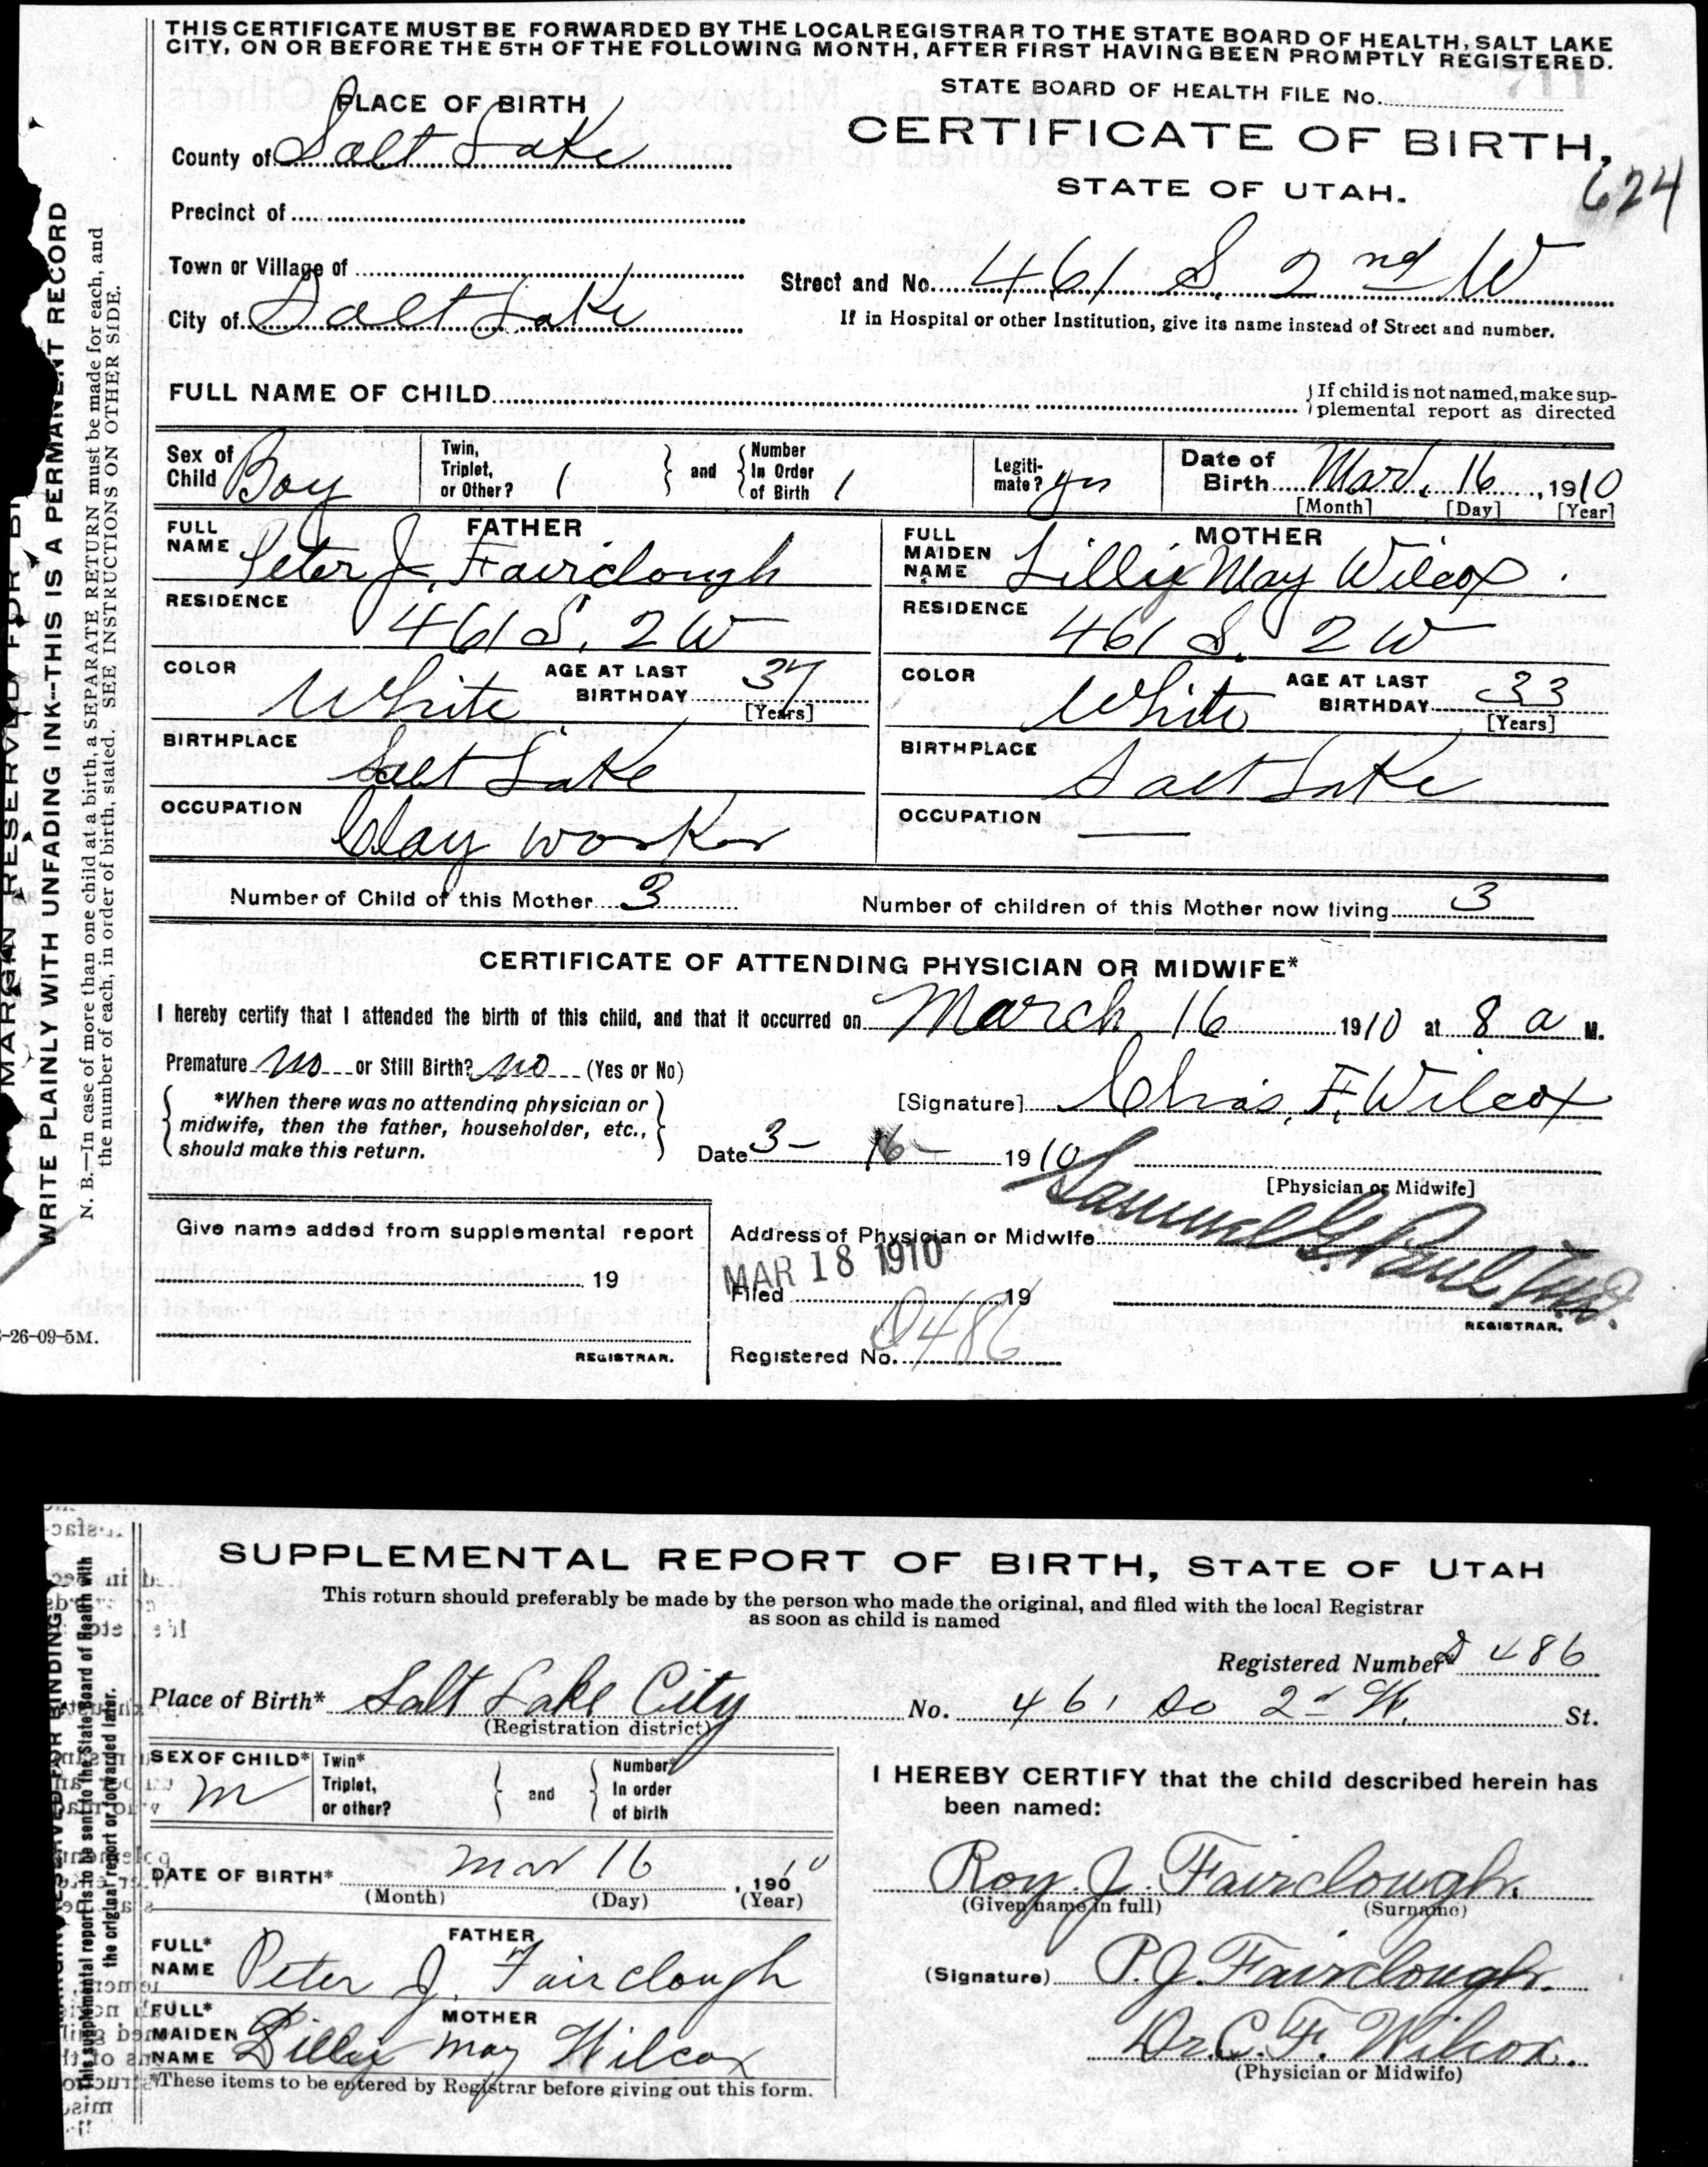 THIS CERTIFICATE MUST BE FORWARDED BY THE LOCAL REGISTRAR TO THE STATE BOARD OF HEALTH, SALT LAKE
CITY, ON OR BEFORE THE 5TH OF THE FOLLOWING MONTH, AFTER FIRST HAVING BEEN PROMPTLY REGISTERED.
STATE BOARD OF HEALTH FILE No.
PLACE OF BIRTH
CERTIFICATE OF BIRTH,
County of Salt Lake
STATE OF UTAH.
624
Precinct of
Town or Village of
Street and No. 461 S. 2nd W
City of Salt Lake
If in Hospital or other Institution, give its name instead of Street and number.
FULL NAME OF CHILD
If child is not named, make sup-
plemental report as directed
Sex of Child Boy
Twin, Triplet, or Other? 1 and Number In Order of Birth 1
Legiti-mate? yes
Date of Birth Mar. 16, 1910
[Month] [Day] [Year]
FATHER
FULL NAME Peter J. Fairclough
MOTHER
FULL MAIDEN NAME Lillie May Wilcox.
RESIDENCE 461 S. 2 W
RESIDENCE 461 S. 2 W
COLOR White AGE AT LAST BIRTHDAY 37 [Years]
COLOR White AGE AT LAST BIRTHDAY 33 [Years]
BIRTHPLACE Salt Lake
BIRTHPLACE Salt Lake
OCCUPATION Clay worker
OCCUPATION —
Number of Child of this Mother 3
Number of children of this Mother now living 3
CERTIFICATE OF ATTENDING PHYSICIAN OR MIDWIFE*
I hereby certify that I attended the birth of this child, and that it occurred on March 16 1910 at 8 a M.
Premature no or Still Birth? no (Yes or No)
*When there was no attending physician or
midwife, then the father, householder, etc.,
should make this return.
[Signature] Chas. F. Wilcox
Date 3- 16- 1910
[Physician or Midwife]
Give name added from supplemental report
19
REGISTRAR.
Address of Physician or Midwife
MAR 18 1910
Filed 19
Samuel G. Paul M.D.
REGISTRAR.
Registered No. D486
-26-09-5M.
MARGIN RESERVED FOR BI
WRITE PLAINLY WITH UNFADING INK--THIS IS A PERMANENT RECORD
N. B.—In case of more than one child at a birth, a SEPARATE RETURN must be made for each, and
the number of each, in order of birth, stated. SEE INSTRUCTIONS ON OTHER SIDE.
SUPPLEMENTAL REPORT OF BIRTH, STATE OF UTAH
This return should preferably be made by the person who made the original, and filed with the local Registrar
as soon as child is named
Registered Number D 486
Place of Birth* Salt Lake City No. 461 So 2d W. St.
(Registration district)
SEX OF CHILD* M
Twin* Triplet, or other? and Number* In order of birth
DATE OF BIRTH* Mar 16, 190 10
(Month) (Day) (Year)
FATHER
FULL* NAME Peter J. Fairclough
MOTHER
FULL* MAIDEN NAME Lillie May Wilcox
*These items to be entered by Registrar before giving out this form.
I HEREBY CERTIFY that the child described herein has
been named:
Roy J. Fairclough.
(Given name in full) (Surname)
(Signature) P.J. Fairclough.
Dr. C. F. Wilcox.
(Physician or Midwife)
This supplemental report is to be sent to the State Board of Health with
the original report or forwarded later.